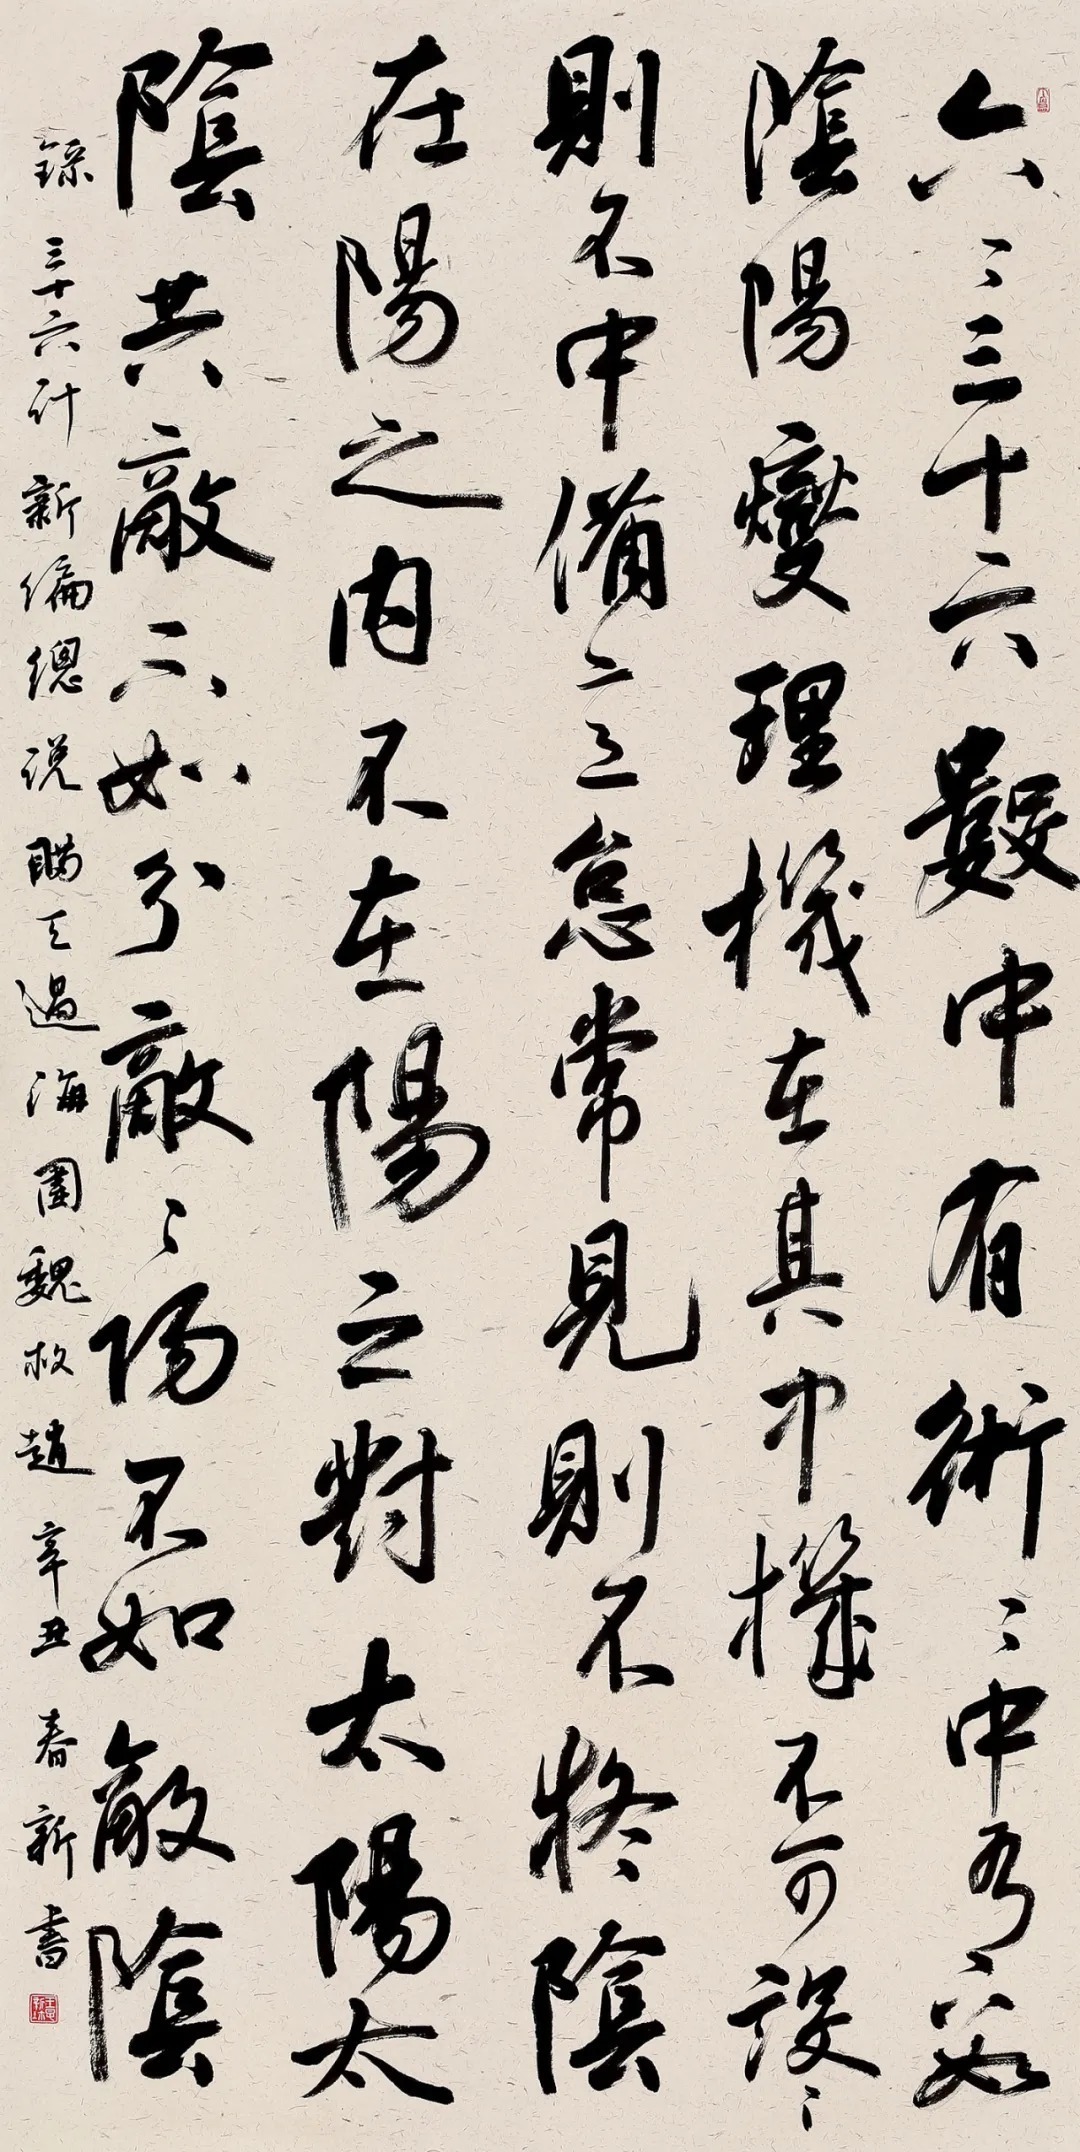 六〻三十六數中有術〻中有數
陰陽燮理機在其中機不可設〻
則不中備怠常見則不疑陰
在陽之内不在陽之對太陽太
陰共敵不如分敵〻陽不如敵陰
錄三十六計新編總説瞞天過海圍魏救趙辛丑春新書